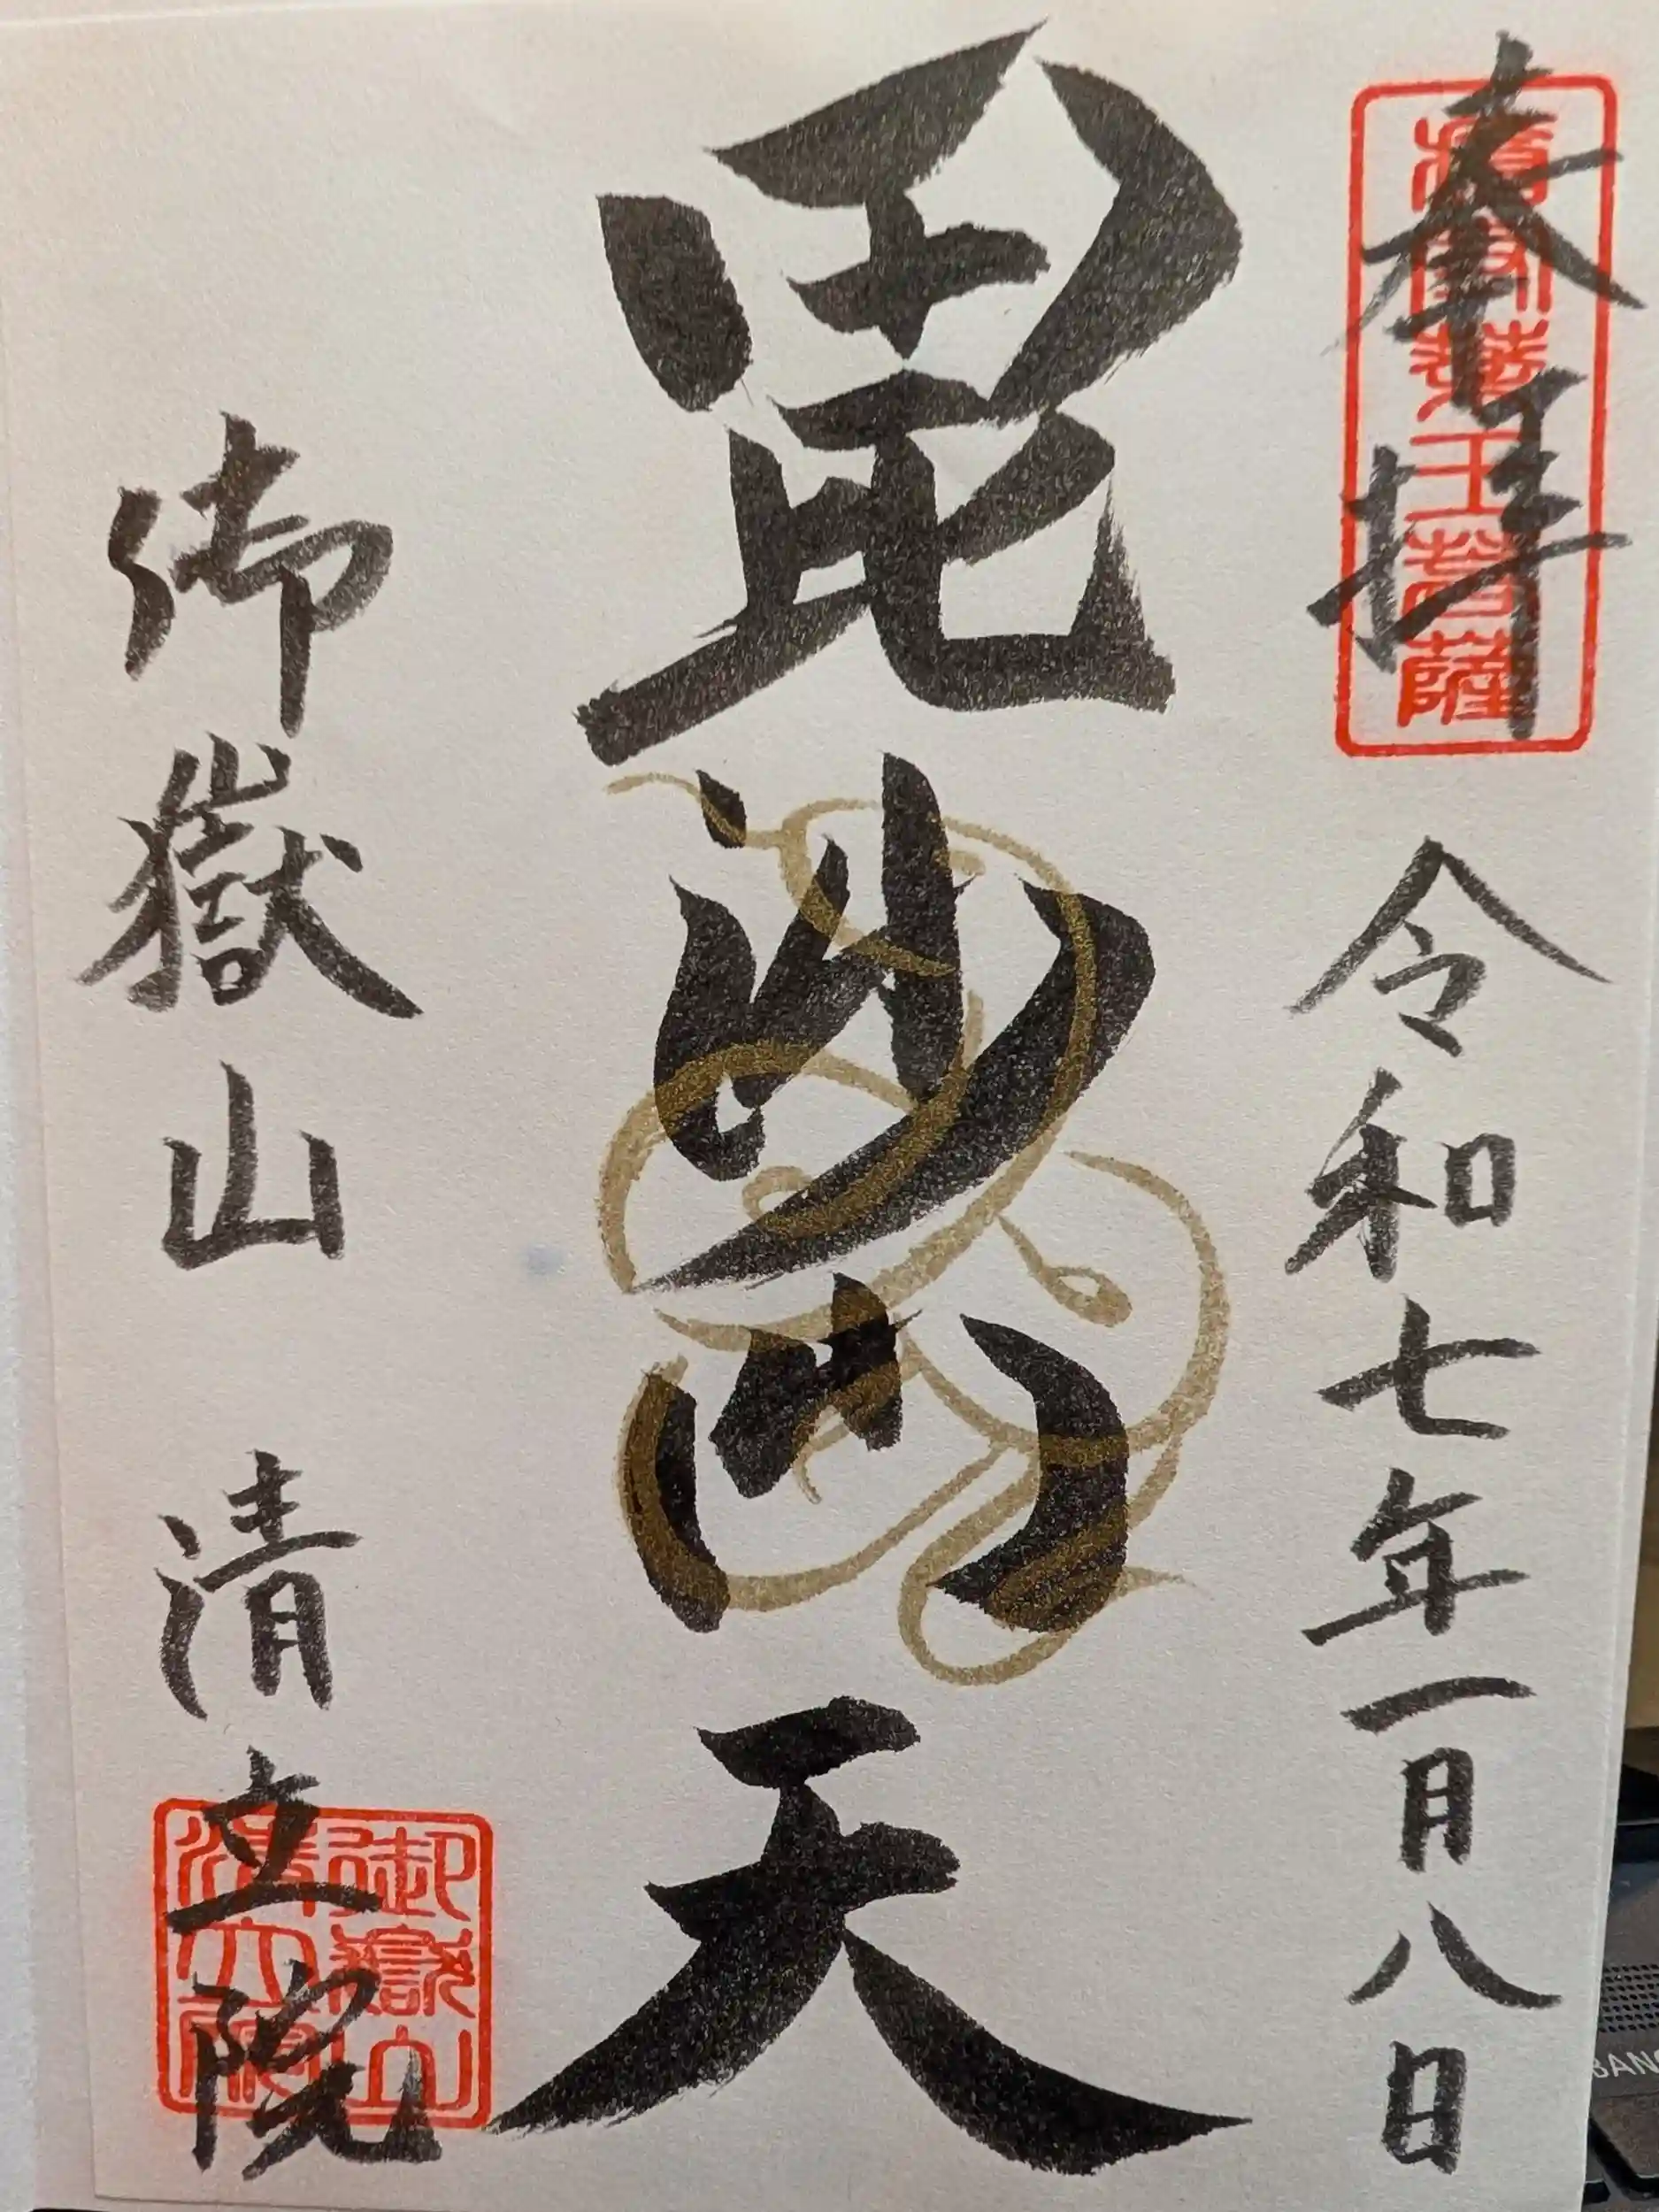 奉拝 令和七年一月八日
毘沙門天
御嶽山 清立院
御嶽山
清立院
王菩薩